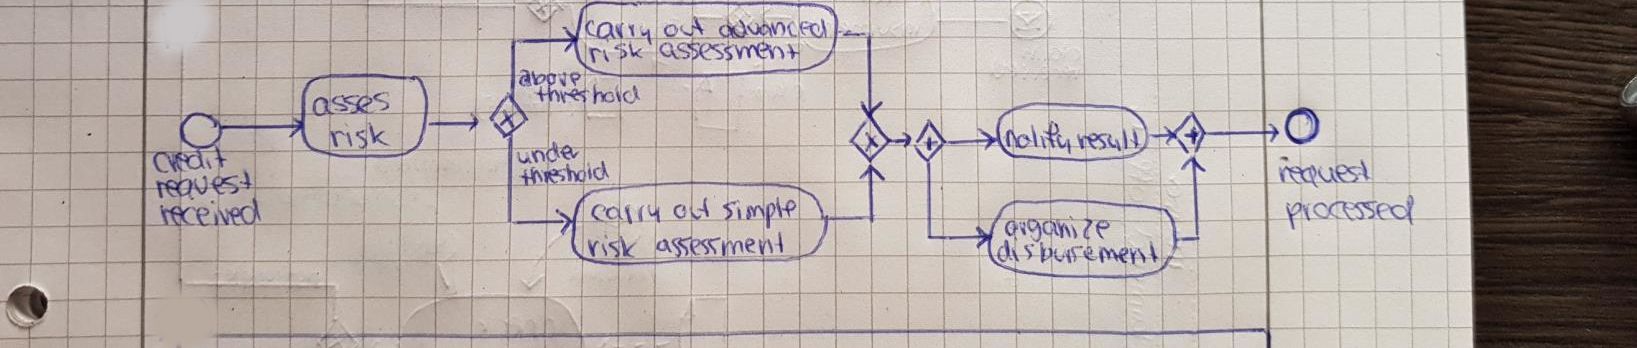 credit
request
received
asses
risk
above
threshold
under
threshold
carry out advanced
risk assessment
carry out simple
risk assessment
notify result
organize
disbursement
request
processed